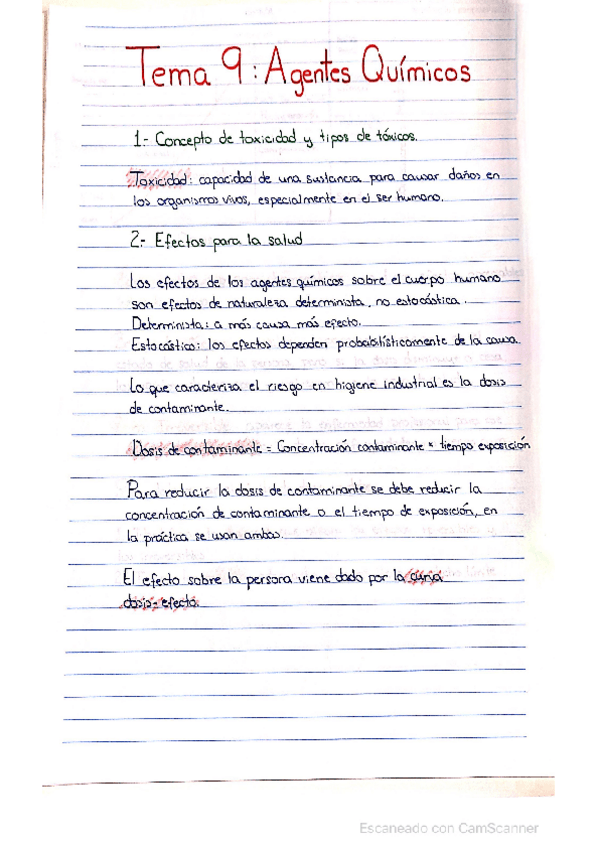 Tema 9: Agentes Químicos
1.- Concepto de toxicidad y tipos de tóxicos.
Toxicidad: capacidad de una sustancia para causar daños en
los organismos vivos, especialmente en el ser humano.
2.- Efectos para la salud
Los efectos de los agentes químicos sobre el cuerpo humano
son efectos de naturaleza determinista, no estocástica.
Determinista: a más causa más efecto.
Estocástica: los efectos dependen probabilísticamente de la causa.
Lo que caracteriza el riesgo en higiene industrial es la dosis
de contaminante.
Dosis de contaminante = Concentración contaminante * tiempo exposición
Para reducir la dosis de contaminante se debe reducir la
concentración de contaminante o el tiempo de exposición, en
la práctica se usan ambas.
El efecto sobre la persona viene dado por la curva
dosis-efecto.
Escaneado con CamScanner